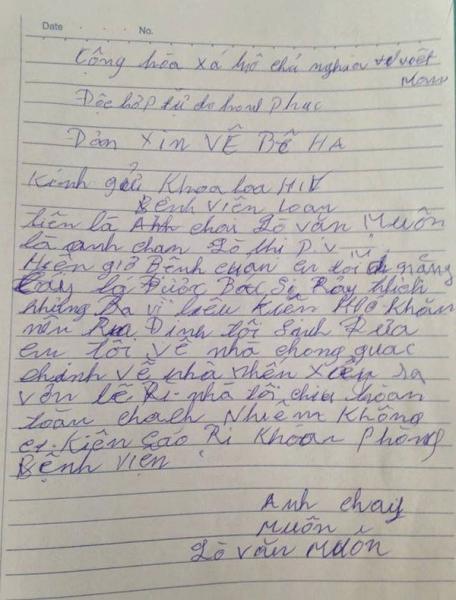 Date No.
Cộng hòa xá hộ chá nghia việt
Nam
Độc hớp tự do hanh Phuc
Dản XIN VỀ BỆ HA
Kính gửi Khoa loa HIV
Bệnh viên loan
tiên là Anh chai Lò văn Muôn
là anh chan Lò thi P.V
Hiên giờ Bệnh cuan en tôi đa giáng
Cay là Được Bac Si Ray thich
nhưng Ba vì liêu Kiên Khó Khăn
nên Rua Đinh tôi Sanh Đưa
em tôi về nhà chong quac
chinh về nhà nhên xiên sa
vân tê Ri nhà tôi chiu hoàn
toàn chach Nhiêm Không
Kiên cáo Ri Khoan Phòng
Bệnh viện
Anh chay
Muôn
Lò văn Muôn